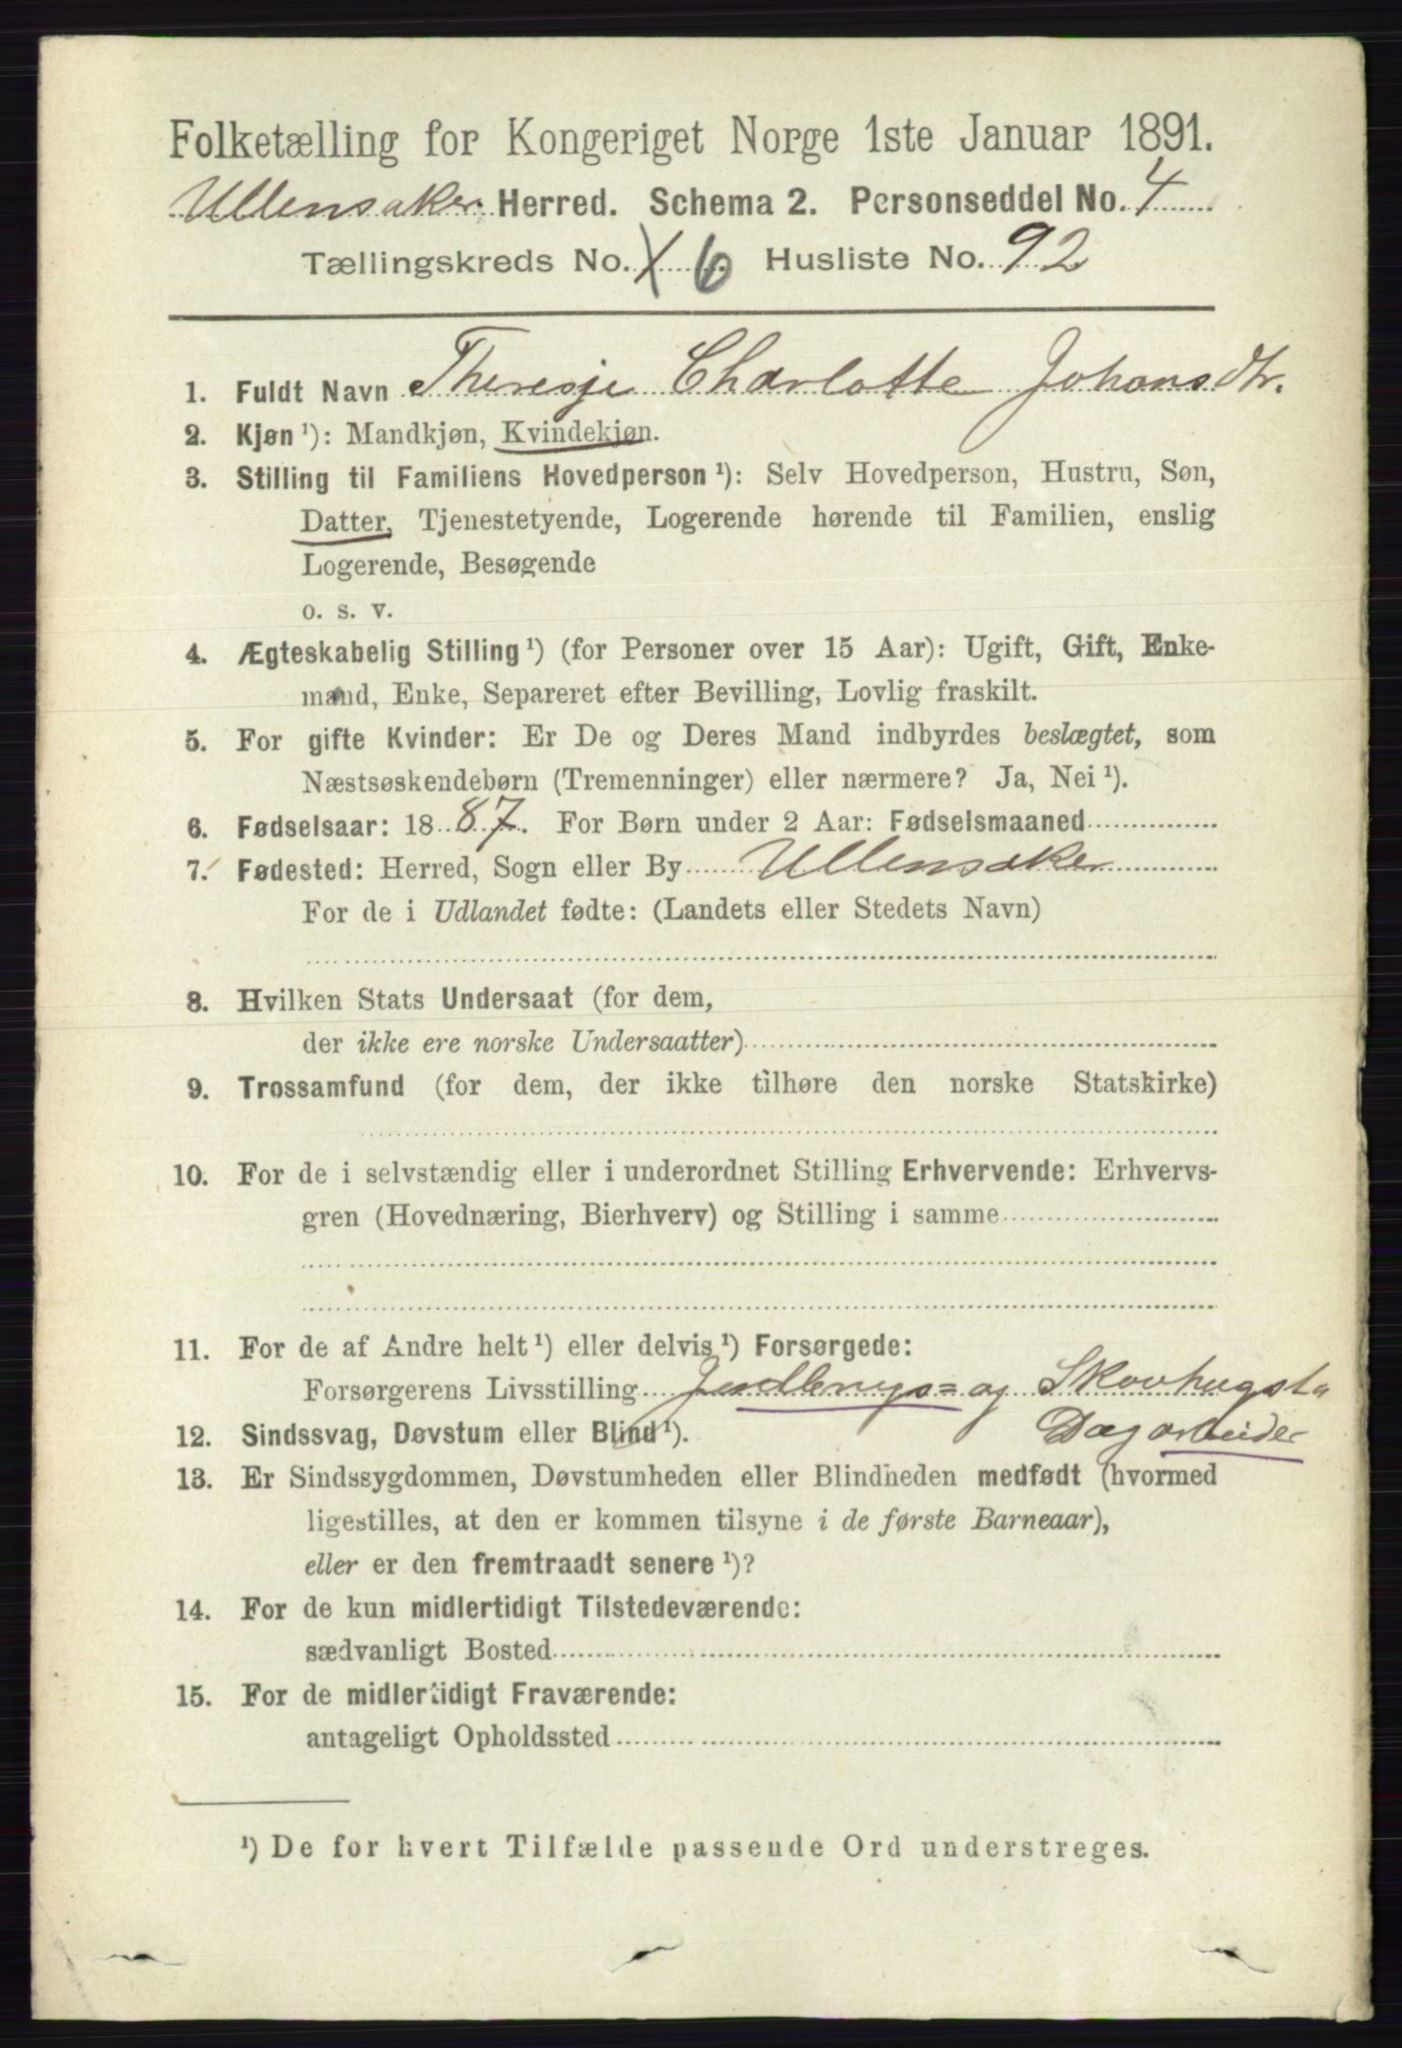 Folketælling for Kongeriget Norge 1ste Januar 1891.
Ullensaker Herred. Schema 2. Personseddel No. 4
Tællingskreds No. 6 Husliste No. 92
1. Fuldt Navn Theresje Charlotte Johansdtr.
2. Kjøn ¹): Mandkjøn, Kvindekjøn.
3. Stilling til Familiens Hovedperson ¹): Selv Hovedperson, Hustru, Søn,
Datter, Tjenestetyende, Logerende hørende til Familien, enslig
Logerende, Besøgende
o. s. v.
4. Ægteskabelig Stilling ¹) (for Personer over 15 Aar): Ugift, Gift, Enke-
mand, Enke, Separeret efter Bevilling, Lovlig fraskilt.
5. For gifte Kvinder: Er De og Deres Mand indbyrdes beslægtet, som
Næstsøskendebørn (Tremenninger) eller nærmere? Ja, Nei ¹).
6. Fødselsaar: 1887. For Børn under 2 Aar: Fødselsmaaned
7. Fødested: Herred, Sogn eller By Ullensaker
For de i Udlandet fødte: (Landets eller Stedets Navn)
8. Hvilken Stats Undersaat (for dem,
der ikke ere norske Undersaatter)
9. Trossamfund (for dem, der ikke tilhøre den norske Statskirke)
10. For de i selvstændig eller i underordnet Stilling Erhvervende: Erhvervs-
gren (Hovednæring, Bierhverv) og Stilling i samme
11. For de af Andre helt ¹) eller delvis ¹) Forsørgede:
Forsørgerens Livsstilling Jordbrugs= og Skovhugst=
12. Sindssvag, Døvstum eller Blind ¹). Dagarbeider
13. Er Sindssygdommen, Døvstumheden eller Blindheden medfødt (hvormed
ligestilles, at den er kommen tilsyne i de første Barneaar),
eller er den fremtraadt senere ¹)?
14. For de kun midlertidigt Tilstedeværende:
sædvanligt Bosted
15. For de midlertidigt Fraværende:
antageligt Opholdssted
¹) De for hvert Tilfælde passende Ord understreges.